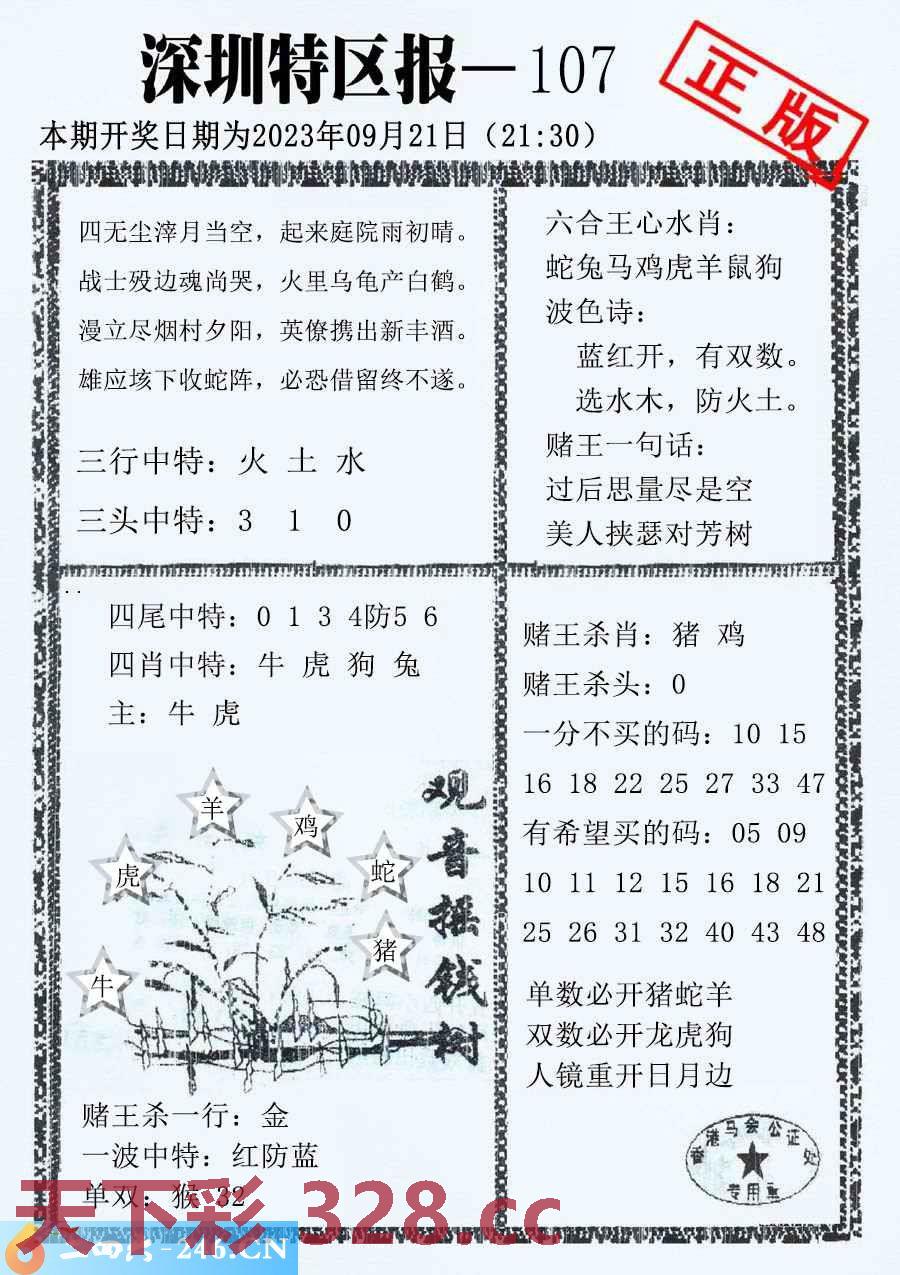 深圳特区报—107
正版
本期开奖日期为2023年09月21日（21:30）
四无尘滓月当空，起来庭院雨初晴。
战士殁边魂尚哭，火里乌龟产白鹤。
漫立尽烟村夕阳，英僚携出新丰酒。
雄应垓下收蛇阵，必恐借留终不遂。
三行中特：火 土 水
三头中特：3 1 0
六合王心水肖：
蛇兔马鸡虎羊鼠狗
波色诗：
蓝红开，有双数。
选水木，防火土。
赌王一句话：
过后思量尽是空
美人挟瑟对芳树
四尾中特：0 1 3 4防5 6
四肖中特：牛 虎 狗 兔
主：牛 虎
羊
鸡
虎
蛇
猪
牛
观音摇钱树
赌王杀一行：金
一波中特：红防蓝
单双：猴 32
赌王杀肖：猪 鸡
赌王杀头：0
一分不买的码：10 15
16 18 22 25 27 33 47
有希望买的码：05 09
10 11 12 15 16 18 21
25 26 31 32 40 43 48
单数必开猪蛇羊
双数必开龙虎狗
人镜重开日月边
香港马会公证处
专用章
天下彩 328.cc
-246.CN